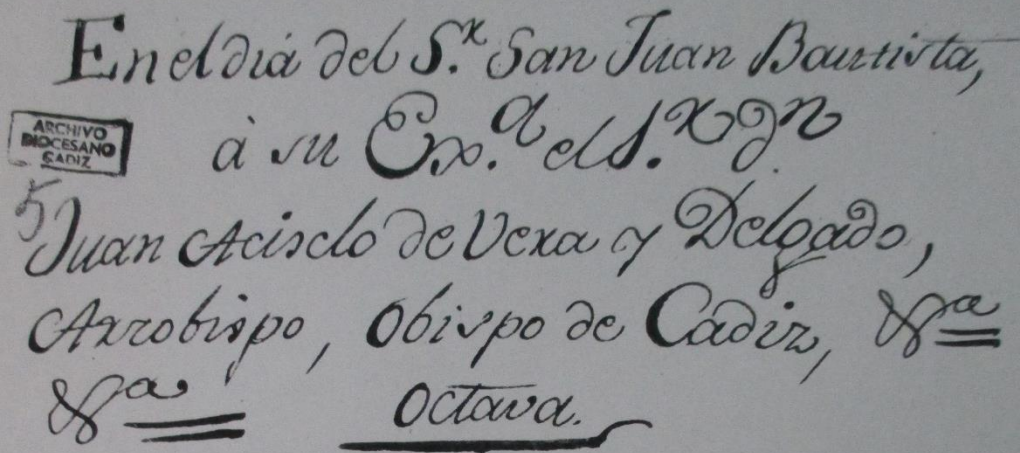 En el dia del S.r San Juan Bautista,
ARCHIVO
DIOCESANO
CADIZ
à su Ex.a el S.r Dn.
5
Juan Acisclo de Vera y Delgado,
Arzobispo, Obispo de Cadiz, &a
&a Octava.